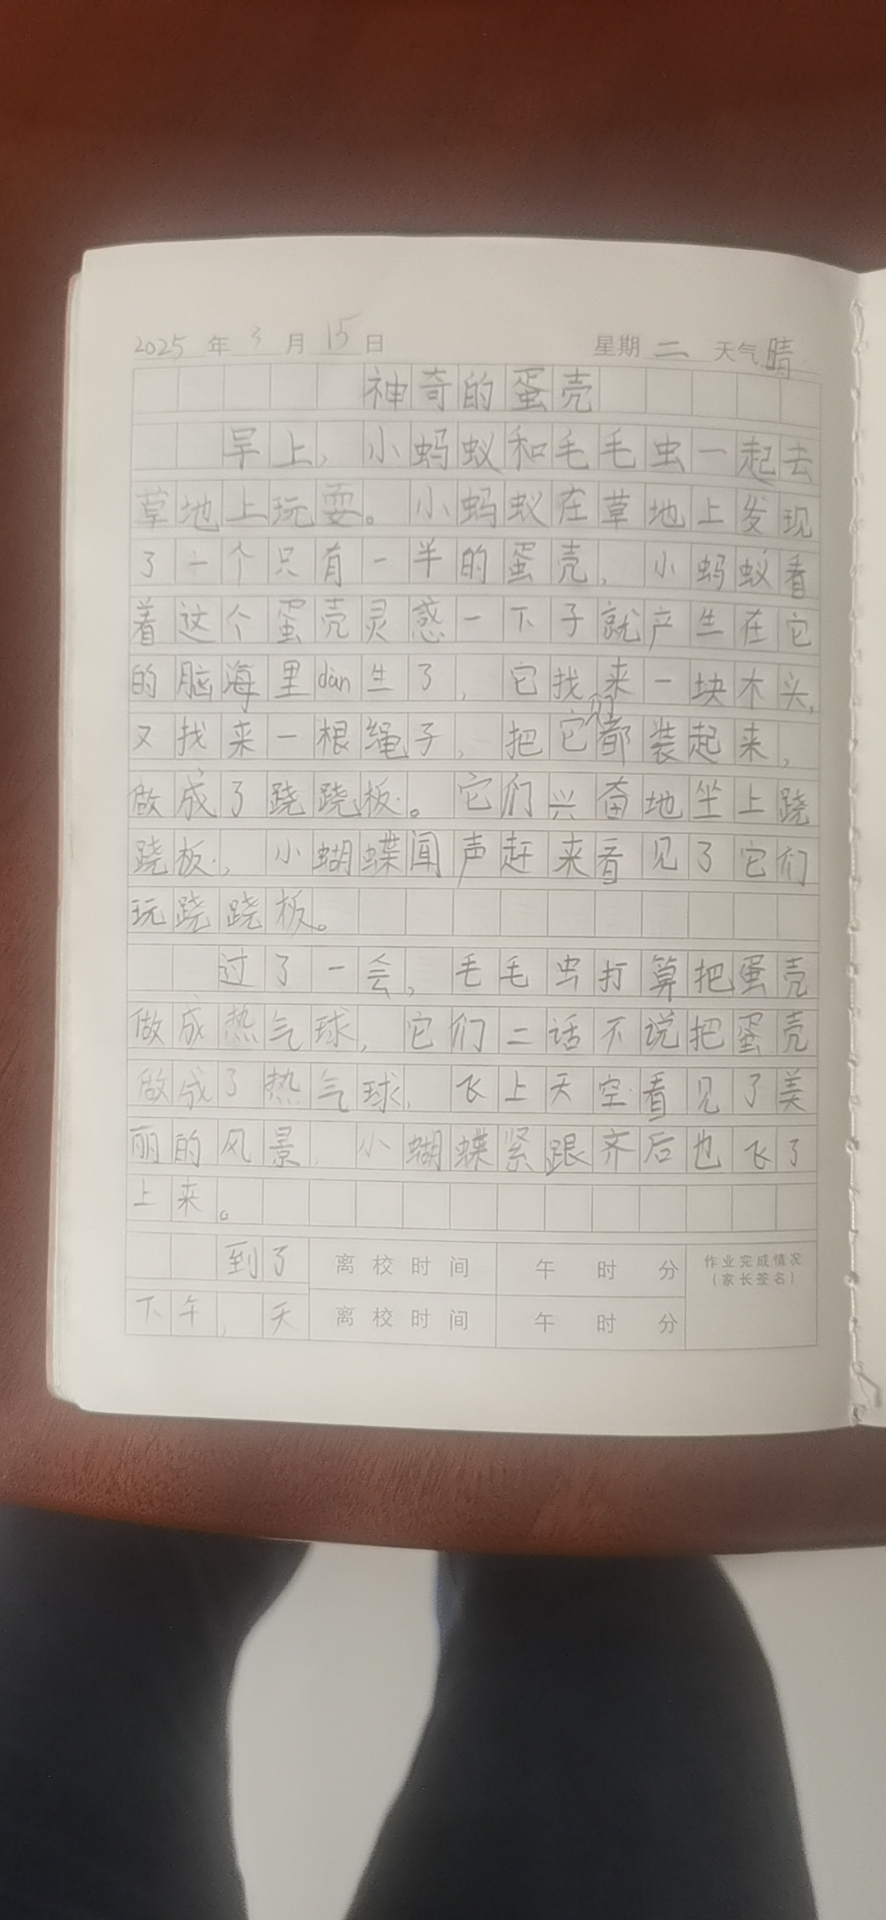 2025年3月15日 星期二 天气晴
神奇的蛋壳
早上，小蚂蚁和毛毛虫一起去
草地上玩耍。小蚂蚁在草地上发现
了一个只有一半的蛋壳，小蚂蚁看
着这个蛋壳灵惑一下子就产生在它
的脑海里dàn生了，它找来一块木头，
又找来一根绳子，把它们都装起来，
做成了跷跷板。它们兴奋地坐上跷
跷板，小蝴蝶闻声赶来看见了它们
玩跷跷板。
过了一会，毛毛虫打算把蛋壳
做成热气球，它们二话不说把蛋壳
做成了热气球，飞上天空看见了美
丽的风景，小蝴蝶紧跟齐后也飞了
上来。
到了 离校时间 午 时 分 作业完成情况
（家长签名）
下午，天 离校时间 午 时 分